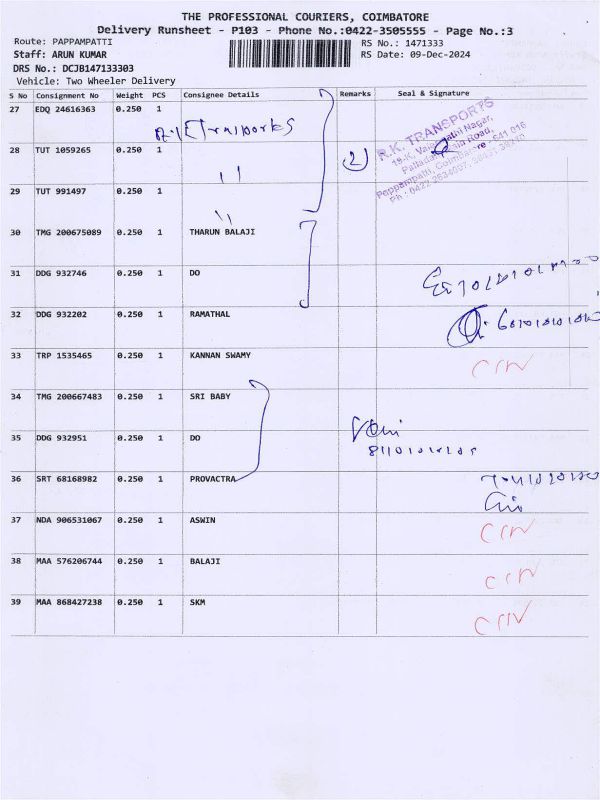 THE PROFESSIONAL COURIERS, COIMBATORE
Delivery Runsheet - P103 - Phone No.:0422-3505555 - Page No.:3
Route: PAPPAMPATTI RS No.: 1471333
Staff: ARUN KUMAR RS Date: 09-Dec-2024
DRS No.: DCJB147133303
Vehicle: Two Wheeler Delivery
S No Consignment No Weight PCS Consignee Details Remarks Seal & Signature
27 EDQ 24616363 0.250 1
R.K. TRANSPORTS
28 TUT 1059265 0.250 1
Palladam Main Road,
29 TUT 991497 0.250 1
30 TMG 200675089 0.250 1 THARUN BALAJI
31 DDG 932746 0.250 1 DO
32 DDG 932202 0.250 1 RAMATHAL
33 TRP 1535465 0.250 1 KANNAN SWAMY
34 TMG 200667483 0.250 1 SRI BABY
35 DDG 932951 0.250 1 DO
36 SRT 68168982 0.250 1 PROVACTRA
37 NDA 906531067 0.250 1 ASWIN
38 MAA 576206744 0.250 1 BALAJI
39 MAA 868427238 0.250 1 SKM